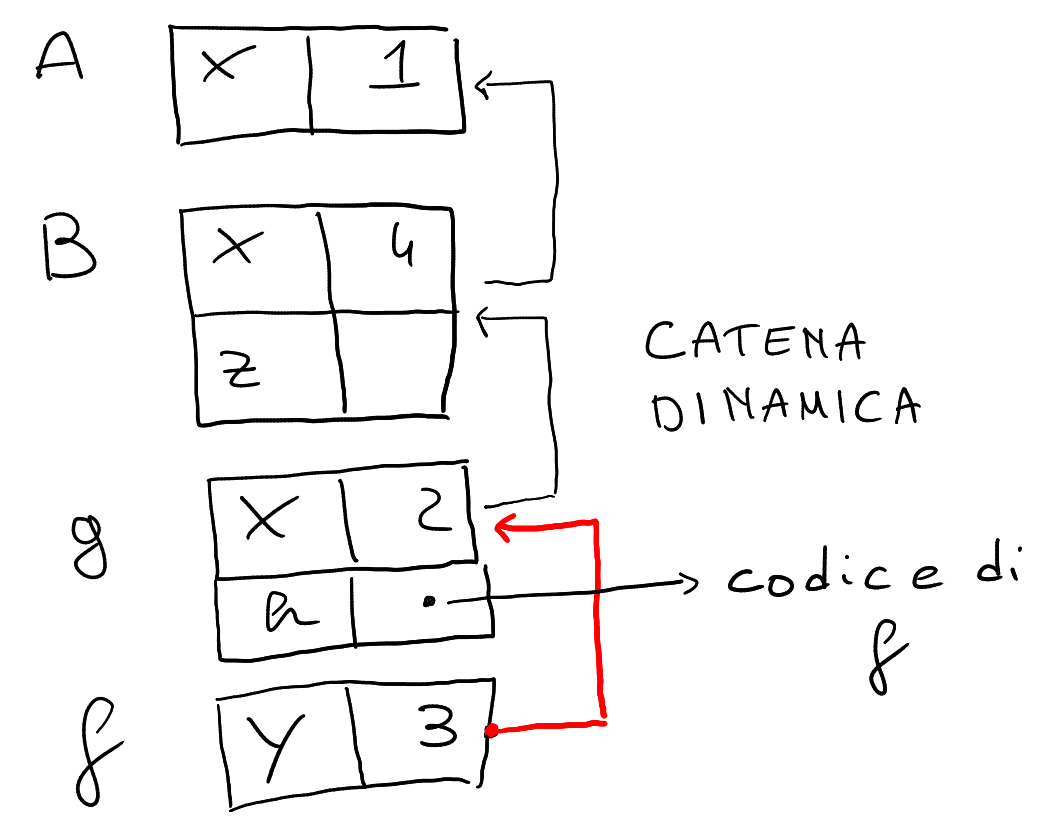 A
X 1
B
X 4
Z
CATENA
DINAMICA
g
X 2
h
codice di
f
f
Y 3